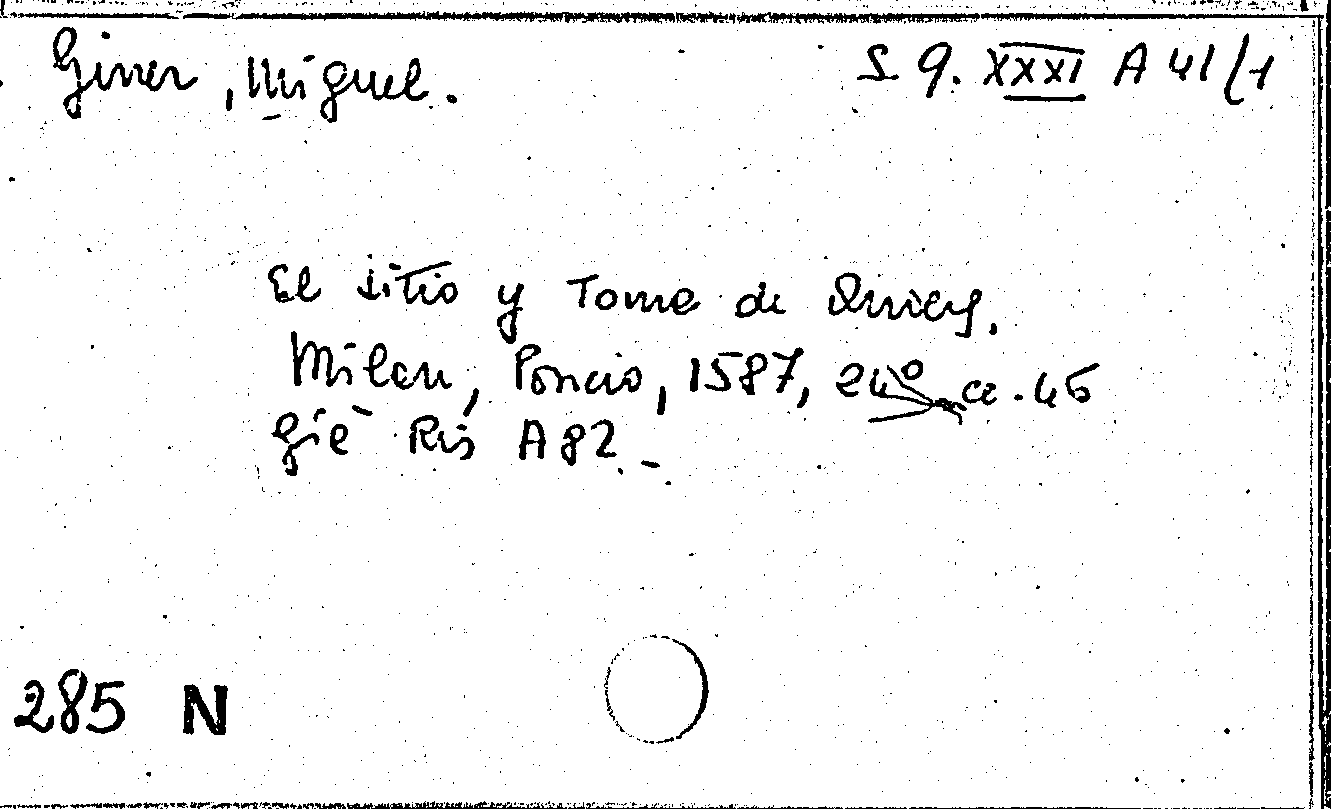 Giner, Miguel. S.Q. XXXI A 41/1
El sitio y toma de
Milan, Poncio, 1587, 24º cc. 46
Già Ris A 82.-
285 N